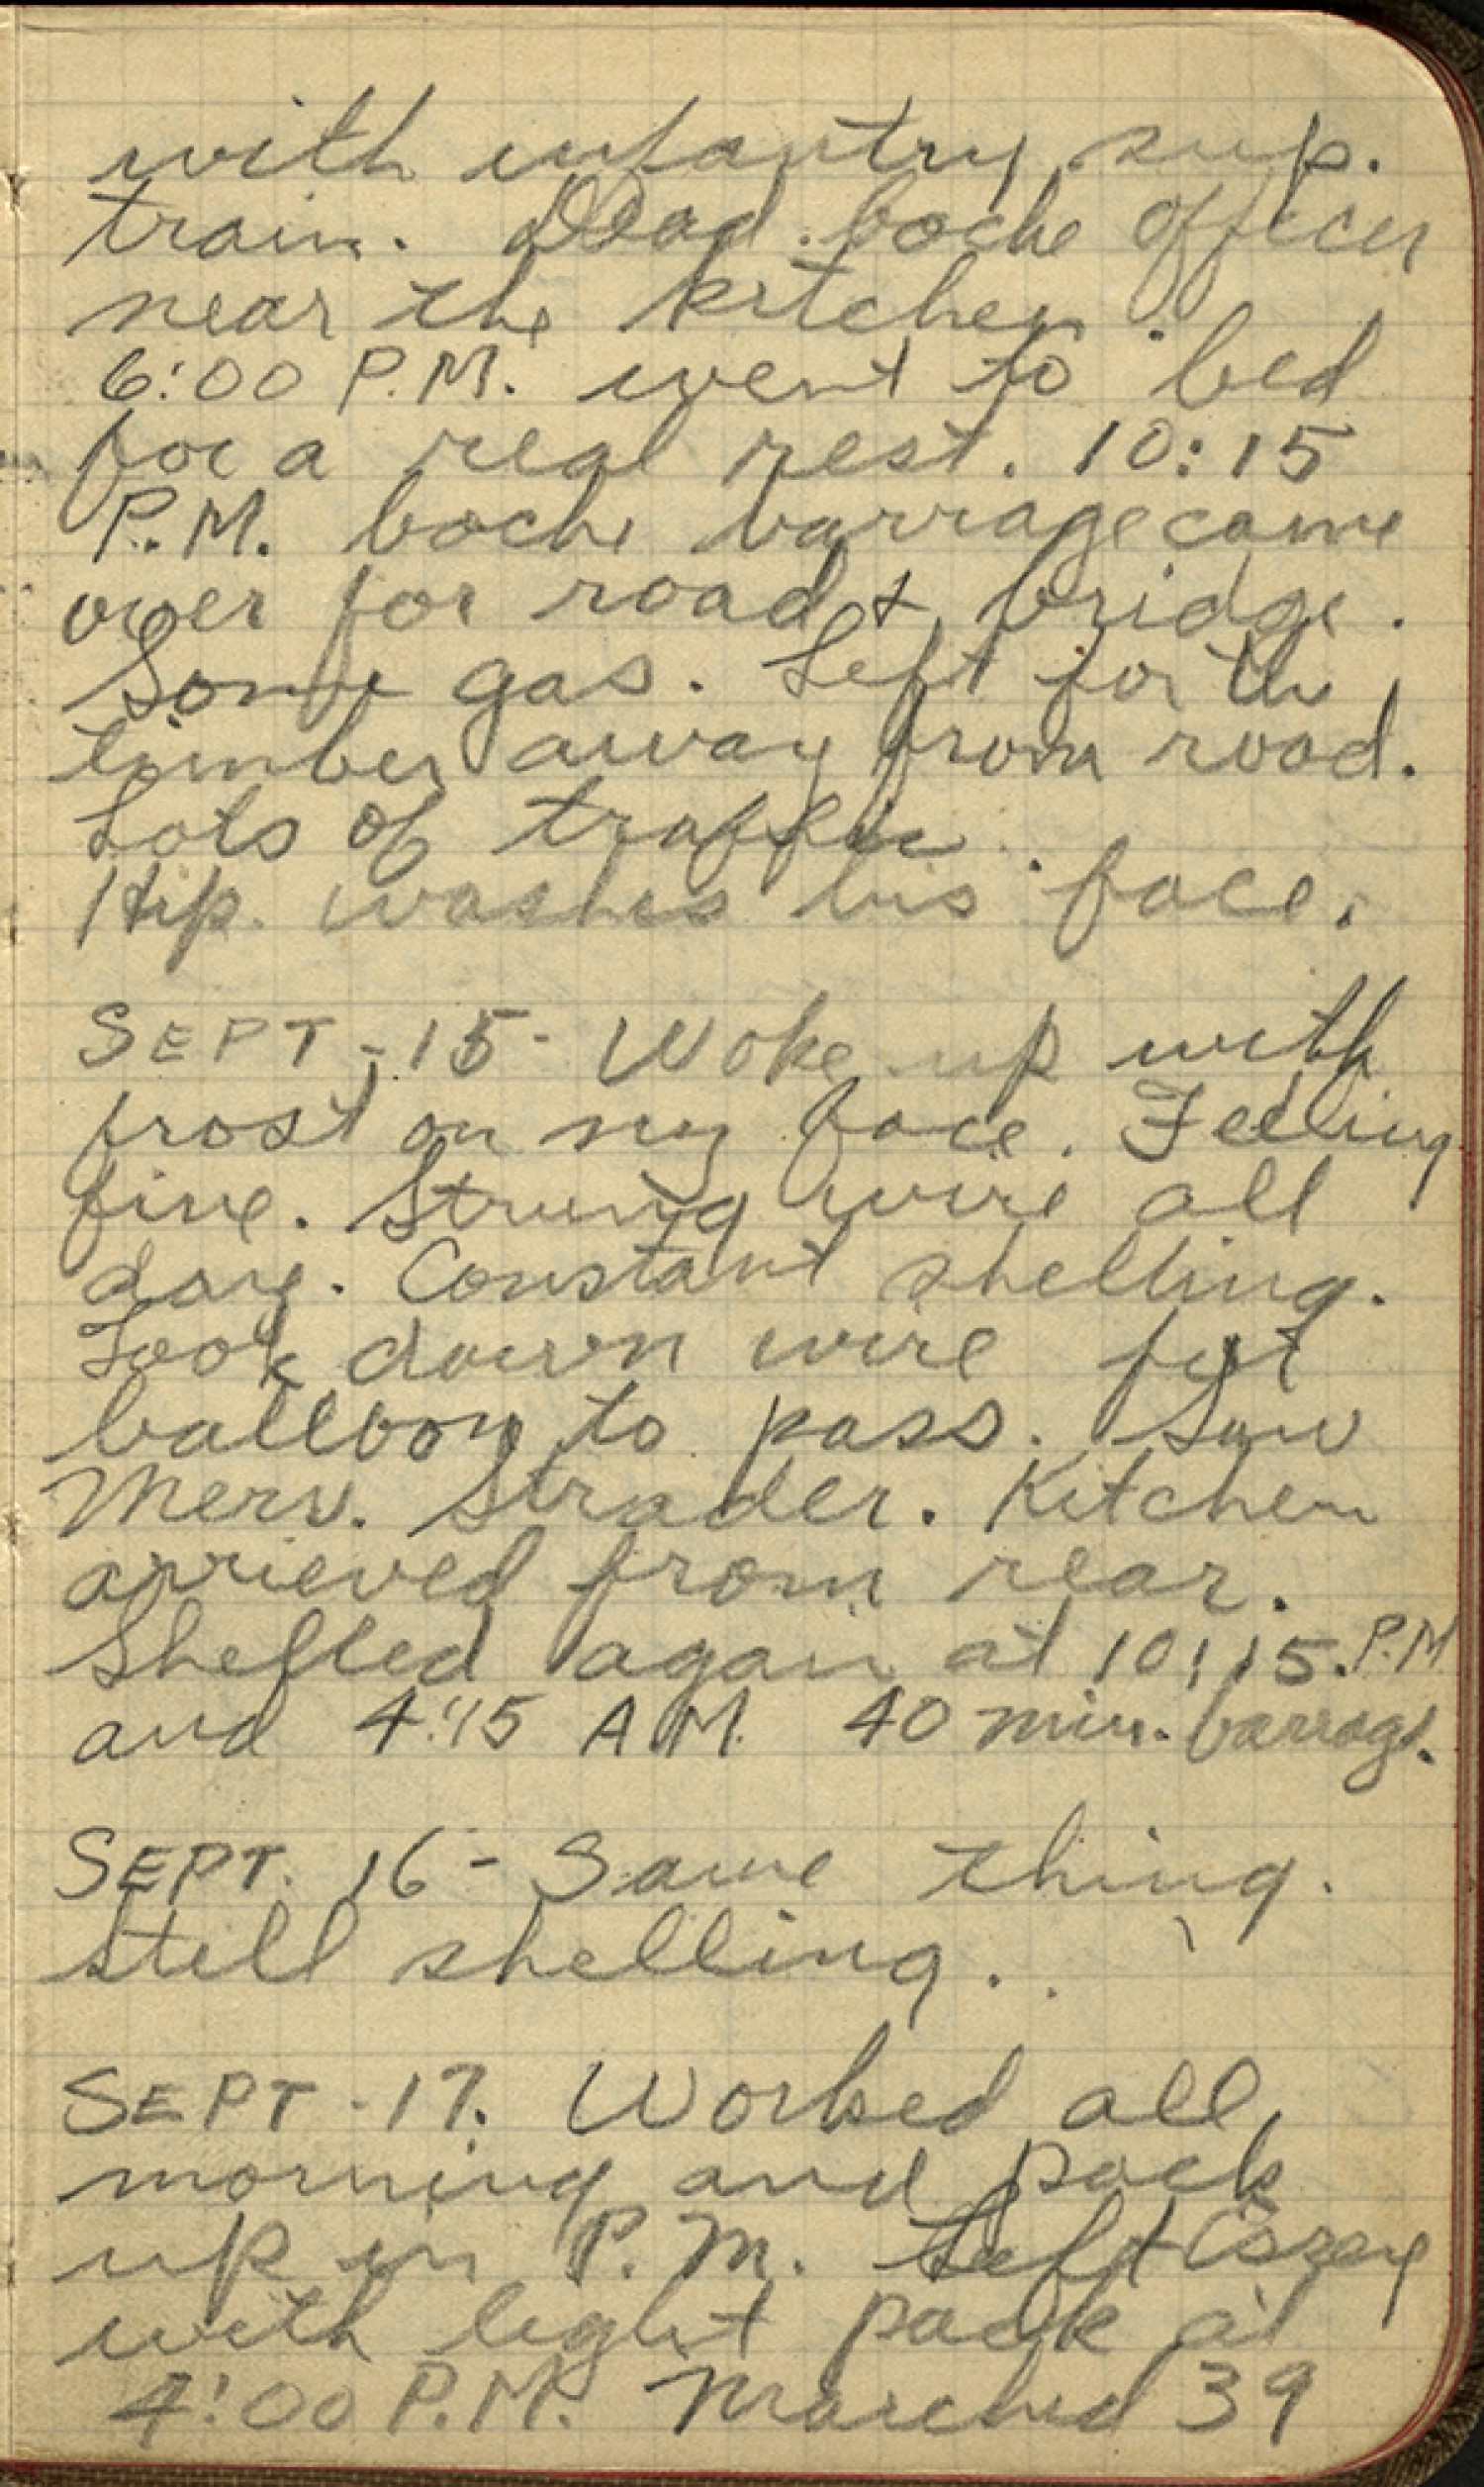 with infantry sup.
train. Dead boche officer
near the kitchen.
6:00 P.M. went to bed
for a real rest. 10:15
P.M. boche barrage came
over for road & bridge.
Some gas. Left for the
timber away from road.
Lots of traffic.
Hip. washes his face.
SEPT. 15 - Woke up with
frost on my face. Feeling
fine. Strung wire all
day. Constant shelling.
Took down wire for
balloon to pass. Saw
Merv. Strader. Kitchen
arrieved from rear.
Shelled again at 10:15. P.M
and 4:15 A.M. 40 min. barrage.
SEPT. 16 - Same thing.
Still shelling.
SEPT. 17. Worked all
morning and pack
up in P.M. Left
with light pack at
4:00 P.M. Marched 39